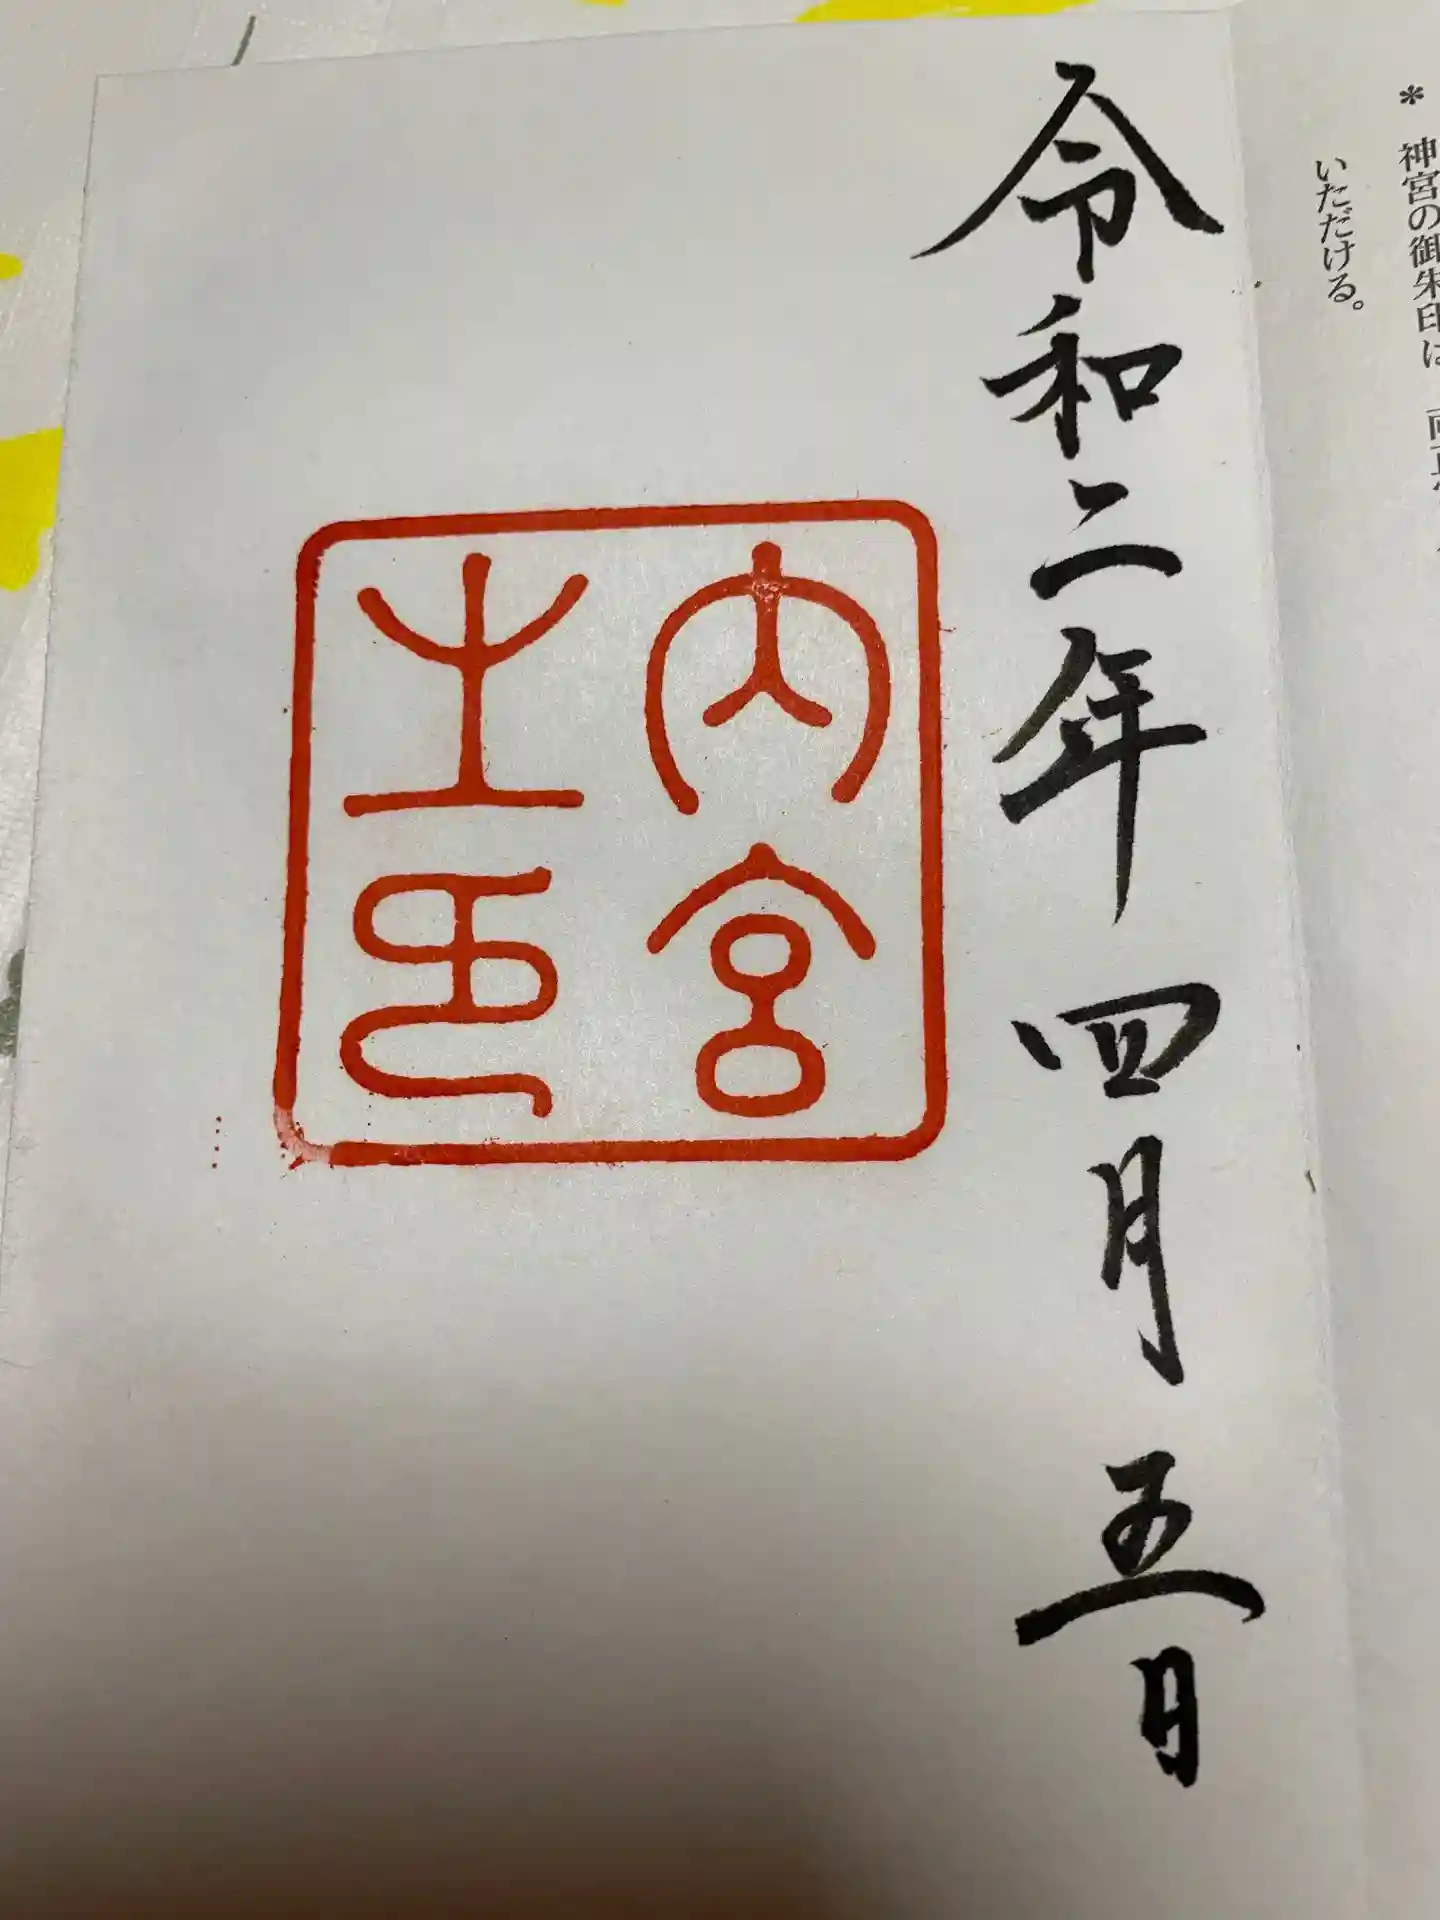 * 神宮の御朱印は
いただける。
令和二年四月五日
内宮
之印